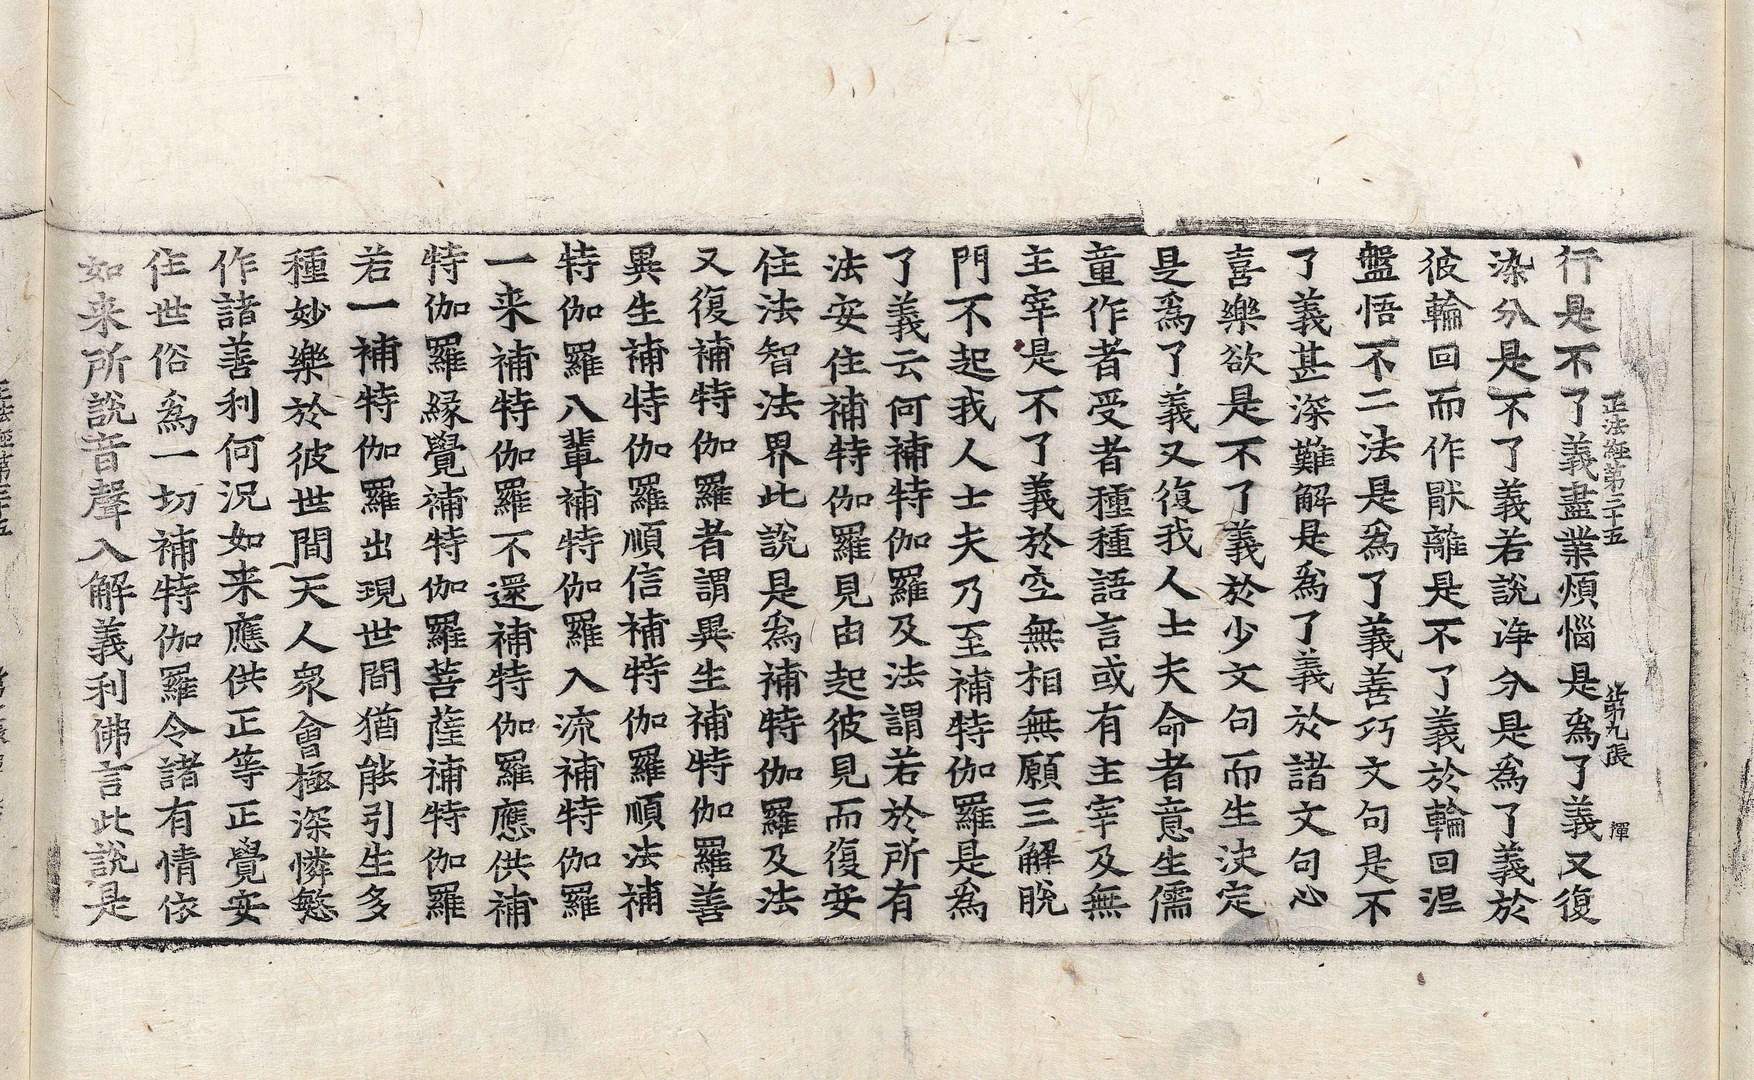 正法經第三十五 第九張 揮
行是不了義盡業煩惱是爲了義又復
染分是不了義若說淨分是爲了義於
彼輪回而作猒離是不了義於輪回涅
盤悟不二法是爲了義善巧文句是不
了義甚深難解是爲了義於諸文句心
喜樂欲是不了義於少文句而生決定
是爲了義又復我人士夫命者意生儒
童作者受者種種語言或有主宰及無
主宰是不了義於空無相無願三解脫
門不起我人士夫乃至補特伽羅是爲
了義云何補特伽羅及法謂若於所有
法安住補特伽羅見由起彼見而復安
住法智法界此說是爲補特伽羅及法
又復補特伽羅者謂異生補特伽羅善
異生補特伽羅順信補特伽羅順法補
特伽羅八輩補特伽羅入流補特伽羅
一来補特伽羅不還補特伽羅應供補
特伽羅緣覺補特伽羅菩薩補特伽羅
若一補特伽羅出現世間猶能引生多
種妙樂於彼世間天人衆會極深憐愍
作諸善利何況如来應供正等正覺安
住世俗爲一切補特伽羅令諸有情依
如来所說音聲入解義利佛言此說是
正法經第三十五